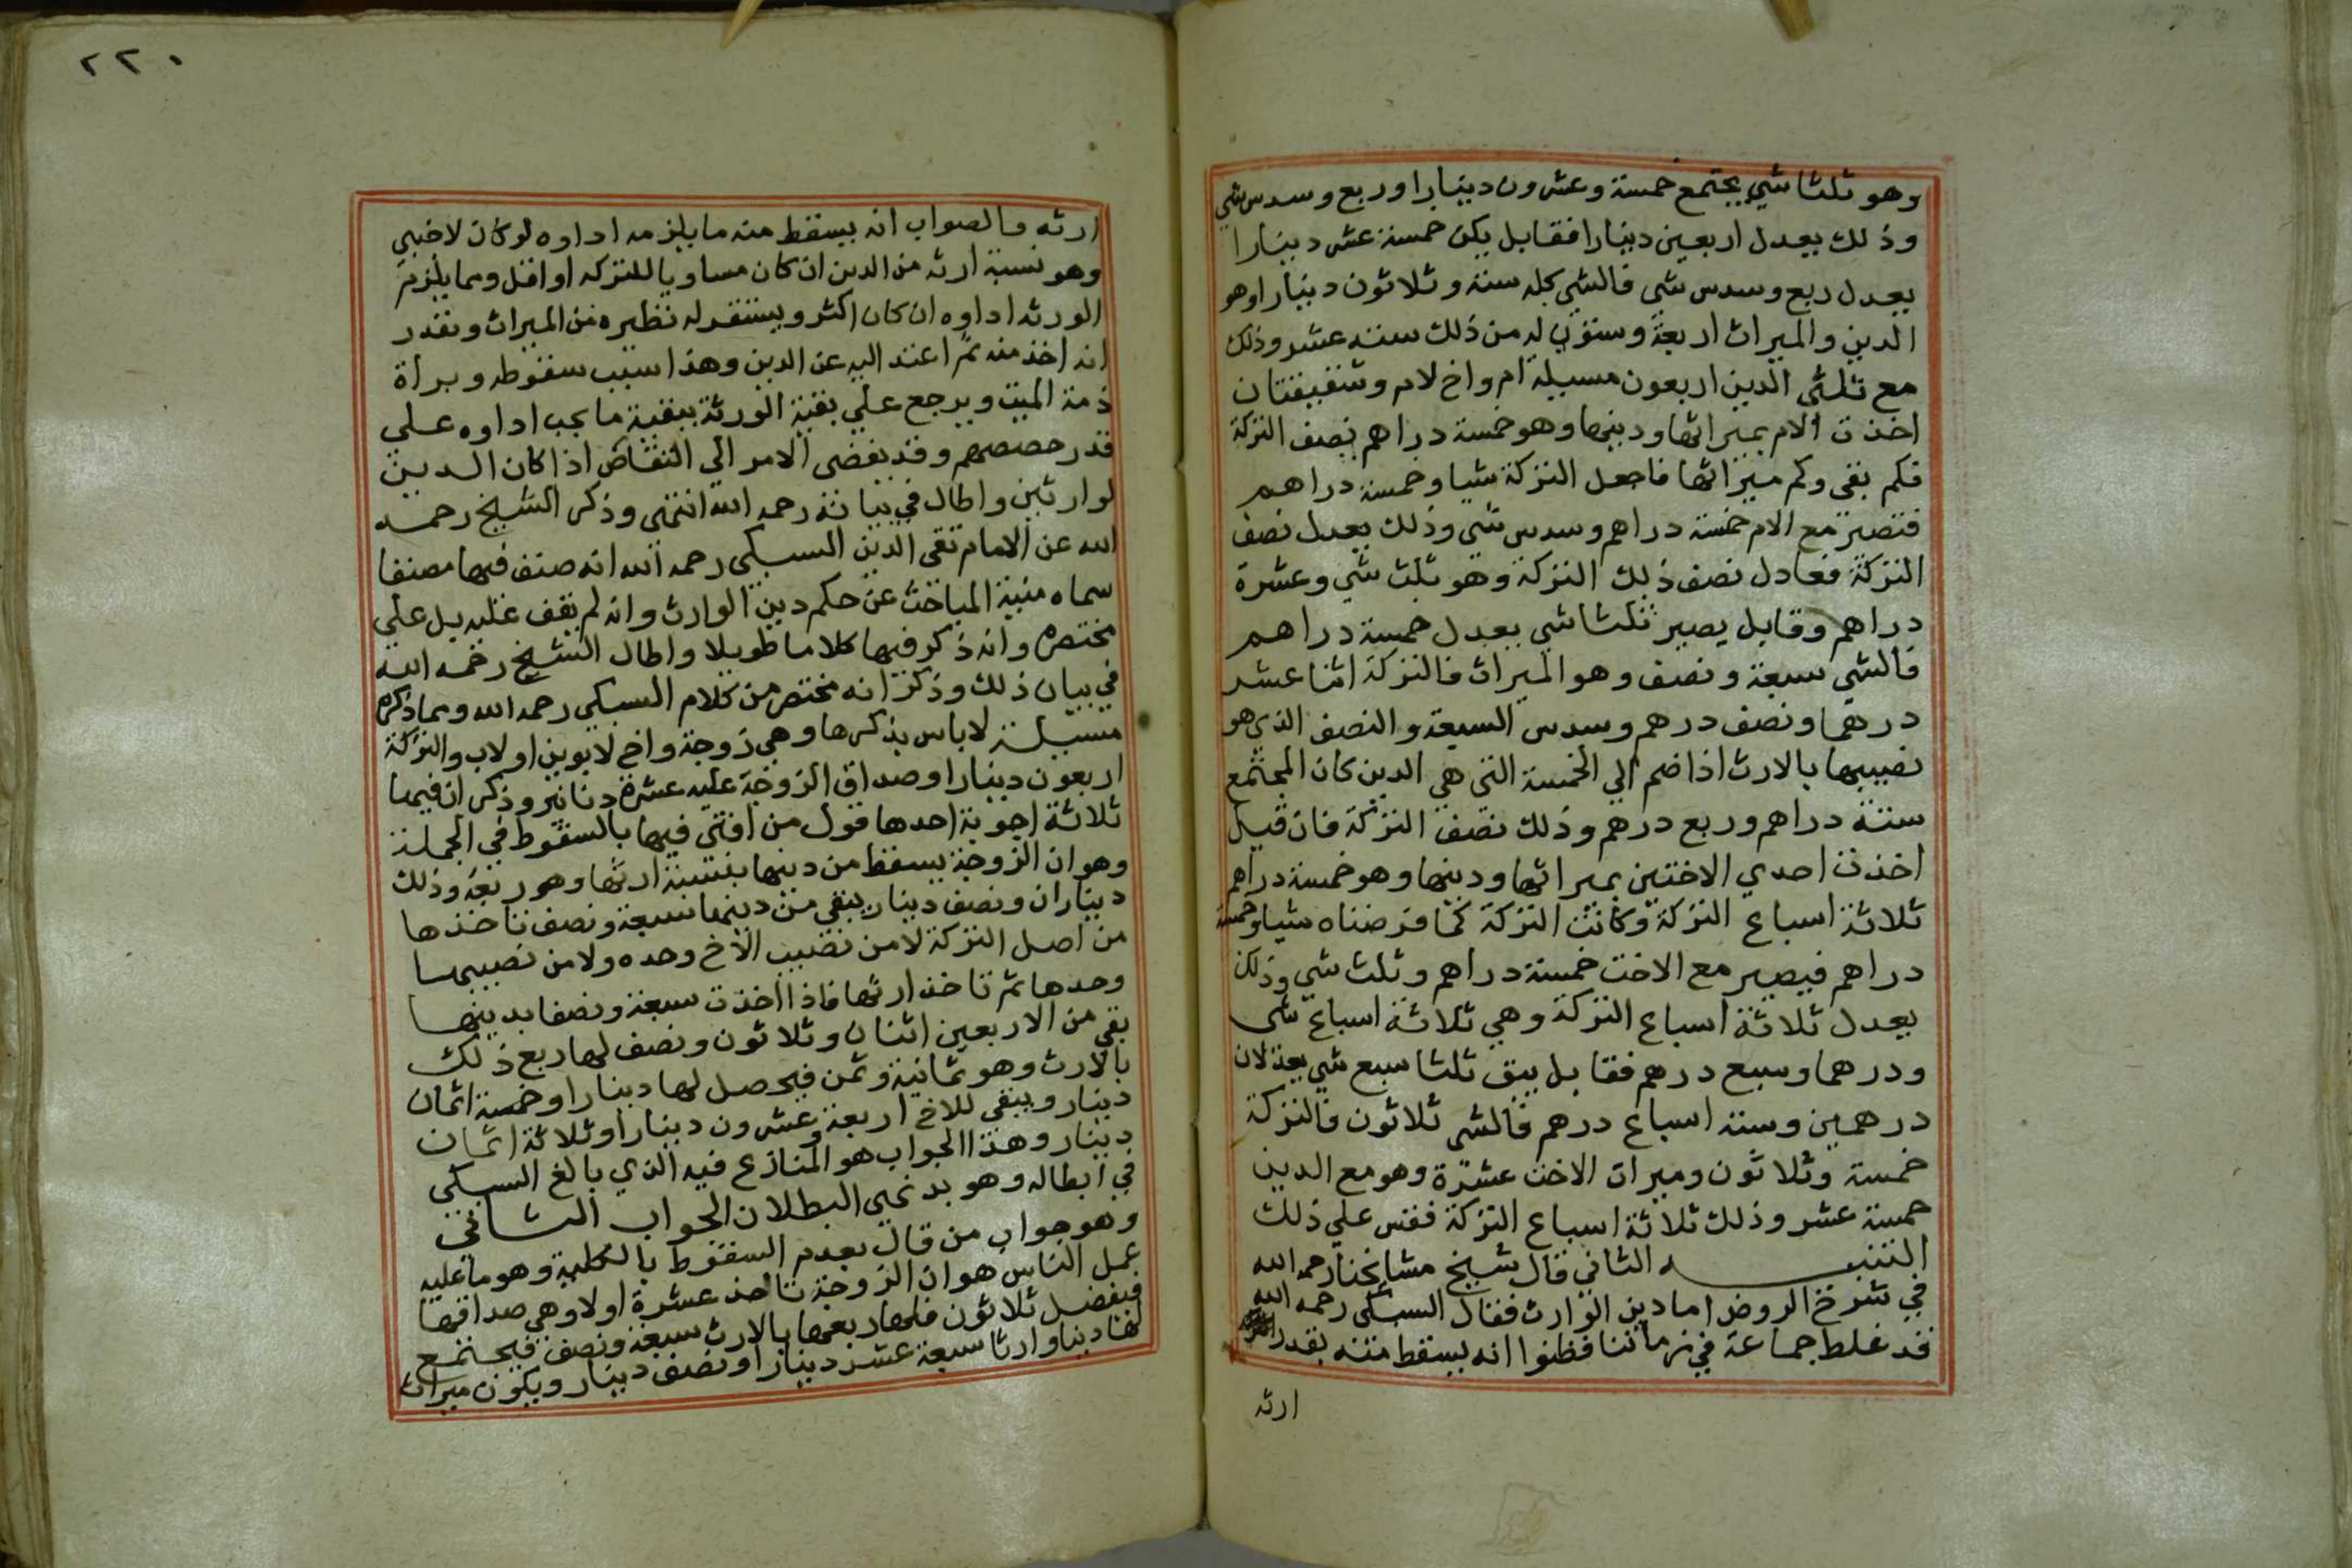 وهو ثلثا شي يجتمع خمسة وعشرون دينارا وربع وسدس شي
وذلك يعدل اربعين دينارا فقابل يكن خمسة عشر دينارا
يعدل ربع وسدس شي فالشي كله ستة وثلاثون دينارا وهو
الدين والميراث اربعة وستون له من ذلك ستة عشر وذلك
مع ثلثي الدين اربعون مسيلة ام واخ لام وشقيقتان
اخذت الام بميراثها ودينها وهو خمسة دراهم نصف التركة
فكم بقي وكم ميراثها فاجعل التركة شيا وخمسة دراهم
فتصير مع الام خمسة دراهم وسدس شي وذلك يعدل نصف
التركة فعادل نصف ذلك التركة وهو ثلث شي وعشرة
دراهم وقابل يصير ثلثا شي يعدل خمسة دراهم
فالشي سبعة ونصف وهو الميراث فالتركة اثنا عشر
درهما ونصف درهم وسدس السبعة والنصف الذي هو
نصيبها بالارث اذا ضم الي الخمسة التي هي الدين كان المجتمع
ستة دراهم وربع درهم وذلك نصف التركة فان قيل
اخذت احدي الاختين بميراثها ودينها وهو خمسة دراهم
ثلاثة اسباع التركة وكانت التركة كما فرضناه شيا وخمسة
دراهم فيصير مع الاخت خمسة دراهم وثلث شي وذلك
يعدل ثلاثة اسباع التركة وهي ثلاثة اسباع شي
ودرهما وسبع درهم فقابل يبق ثلثا سبع شي يعدلان
درهمين وستة اسباع درهم فالشي ثلاثون فالتركة
خمسة وثلاثون وميراث الاخت عشرة وهو مع الدين
خمسة عشر وذلك ثلاثة اسباع التركة فقس علي ذلك
التنبيه الثاني قال شيخ مشايخنا رحمه الله
في شرح الروض اما دين الوارث فقال السبكي رحمه الله
قد غلط جماعة في زماننا فظنوا انه يسقط منه بقدر
ارثه
٢٢٠
ارثه والصواب انه يسقط منه ما يلزمه اداوه لو كان لاخبي
وهو نسبة ارثه من الدين ان كان مساويا للتركه او اقل ومما يلزم
الورثه اداوه ان كان اكثر ويستقر له نظيره من الميراث ونقدر
انه اخذ منه ثم اعتد اليه عن الدين وهذا سبب سقوطه وبراة
ذمة الميت ويرجع علي بقية الورثة ببقية ما يجب اداوه علي
قدر حصصهم وقد يفضي الامر الي التقاص اذا كان الدين
لوارثين واطال في بيانه رحمه الله انتهي وذكر الشيخ رحمه
الله عن الامام تقي الدين السبكي رحمه الله انه صنف فيها مصنفا
سماه منية المباحث عن حكم دين الوارث وانه لم يقف عليه بل علي
مختصره وانه ذكر فيها كلاما طويلا واطال الشيخ رحمه الله
في بيان ذلك وذكر انه مختصر من كلام السبكي رحمه الله ومما ذكره
مسيلة لاباس بذكرها وهي زوجة واخ لابوين او لاب والتركة
اربعون دينارا وصداق الزوجة عليه عشرة دنانير وذكر ان فيها
ثلاثة اجوبة احدها قول من افتي فيها بالسقوط في الجملة
وهو ان الزوجة يسقط من دينها بنسبة ارثها وهو ربعه وذلك
ديناران ونصف دينار يبقي من دينها سبعة ونصف تاخذها
من اصل التركة لا من نصيب الاخ وحده ولا من نصيبها
وحدها ثم تاخذ ارثها فاذا اخذت سبعة ونصفا بدينها
بقي من الاربعين اثنان وثلاثون ونصف لها ربع ذلك
بالارث وهو ثمانية وثمن فيحصل لها دينارا وخمسة اثمان
دينار ويبقي للاخ اربعة وعشرون دينارا وثلاثة اثمان
دينار وهذا الجواب هو المنازع فيه الذي بالغ السبكي
في ابطاله وهو بديهي البطلان الجواب الثاني
وهو جواب من قال بعدم السقوط بالكلية وهو ما عليه
عمل الناس هو ان الزوجة تاخذ عشرة اولا وهي صداقها
فيفضل ثلاثون فلها ربعها بالارث سبعة ونصف فيجتمع
لها دينا وارثا سبعة عشر دينارا ونصف دينار ويكون ميراث